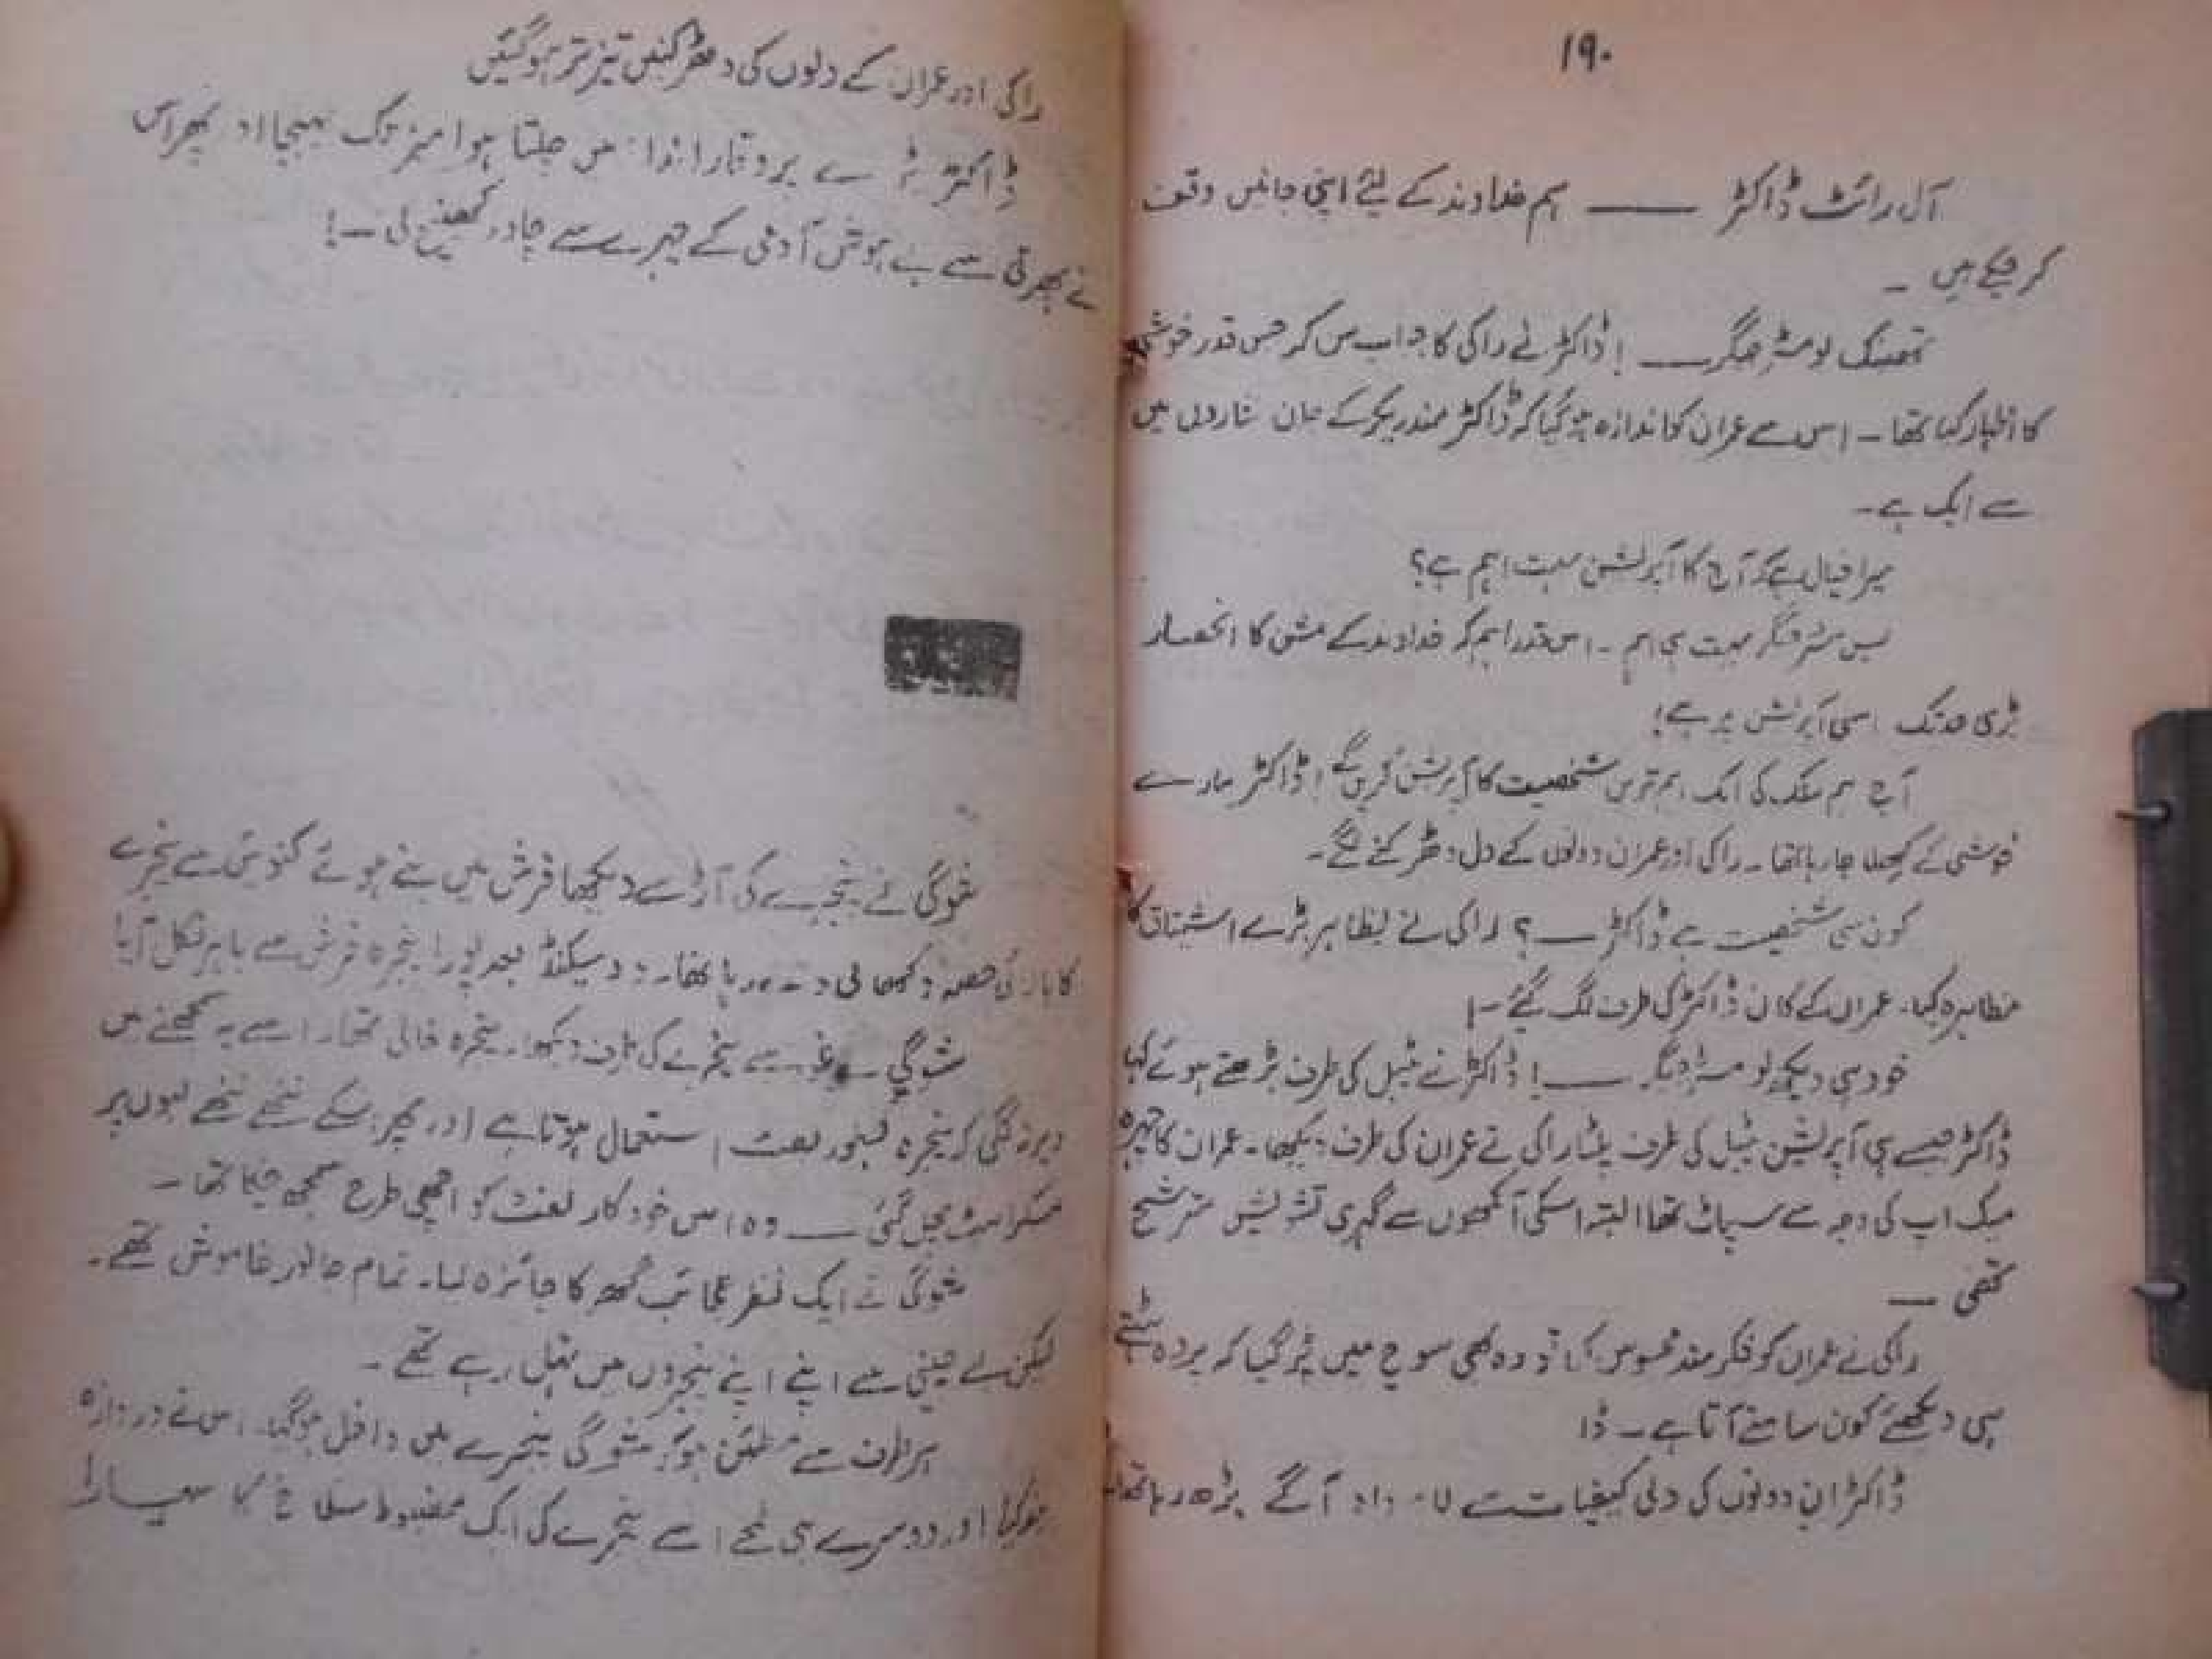 ۱۹۰
آل رائٹ ڈاکٹر —— ہم خداوند کے لیئے اپنی جانیں وقف
کر چکے ہیں ۔
تھینک یو مسٹر —— ! ڈاکٹر نے راکی کا جواب سن کر جس قدر خوشی
کا اظہار کیا تھا ۔ اس سے عمران کو اندازہ ہو گیا کہ ڈاکٹر کے جان نثاروں میں
سے ایک ہے ۔
میرا خیال ہے کہ آج کا آپریشن بہت اہم ہے؟
یس مسٹر بہت ہی اہم ۔ اس قدر اہم کہ خداوند کے مشن کا انحصار
بڑی حد تک اسی آپریشن پر ہے!
آج ہم ملک کی ایک اہم ترین شخصیت کا آپریشن کریں گے! ڈاکٹر مارے
خوشی کے کھلا جا رہا تھا ۔ راکی اور عمران دونوں کے دل دھڑکنے لگے ۔
کون سی شخصیت ہے ڈاکٹر —— ؟ راکی نے بظاہر بڑے اشتیاق کا
مظاہرہ کیا ۔ عمران کے کان ڈاکٹر کی طرف لگ گئے ۔!
خود ہی دیکھ لو —— ! ڈاکٹر نے ٹیبل کی طرف بڑھتے ہوئے کہا
ڈاکٹر جیسے ہی آپریشن ٹیبل کی طرف پلٹا راکی نے عمران کی طرف دیکھا ۔ عمران کا چہرہ
میک اپ کی وجہ سے سپاٹ تھا البتہ اسکی آنکھوں سے گہری تشویش مترشح
تھی ——
راکی نے عمران کو فکر مند محسوس کیا تو وہ بھی سوچ میں پڑ گیا کہ پردہ ہٹتے
ہی دیکھئے کون سامنے آتا ہے ۔ ڈا
ڈاکٹر ان دونوں کی دلی کیفیات سے آگے بڑھ رہا تھا
راکی اور عمران کے دلوں کی دھڑکنیں تیز تر ہو گئیں
ڈاکٹر بڑے پر وقار انداز میں چلتا ہوا میز تک پہنچا اور پھر اس
نے پھرتی سے بے ہوش آدمی کے چہرے سے چادر کھینچ لی ۔!
شوگی نے پنجرے کی آڑ سے دیکھا فرش میں بنے ہوئے کنوئیں سے پنجرے
کا حصہ دکھائی دے رہا تھا ۔ دو سیکنڈ بعد پورا پنجرہ فرش سے باہر نکل آیا
شوگی نے غور سے پنجرے کی طرف دیکھا ۔ پنجرہ خالی تھا ۔ اسے یہ سمجھنے میں
دیر نہ لگی کہ پنجرہ بطور لفٹ استعمال ہوتا ہے اور پھر اسکے ننھے ننھے لبوں پر
مسکراہٹ پھیل گئی —— وہ اس خود کار لفٹ کو اچھی طرح سمجھ چکا تھا ۔
شوگی نے ایک نظر عجائب گھر کا جائزہ لیا ۔ تمام جانور خاموش تھے ۔
لیکن بے چینی سے اپنے اپنے پنجروں میں ٹہل رہے تھے ۔
ہر طرف سے مطمئن ہو کر شوگی پنجرے میں داخل ہو گیا ۔ اس نے دروازہ
اور دوسرے ہی لمحے اسے پنجرے کی ایک مضبوط سلاخ کا سہارا